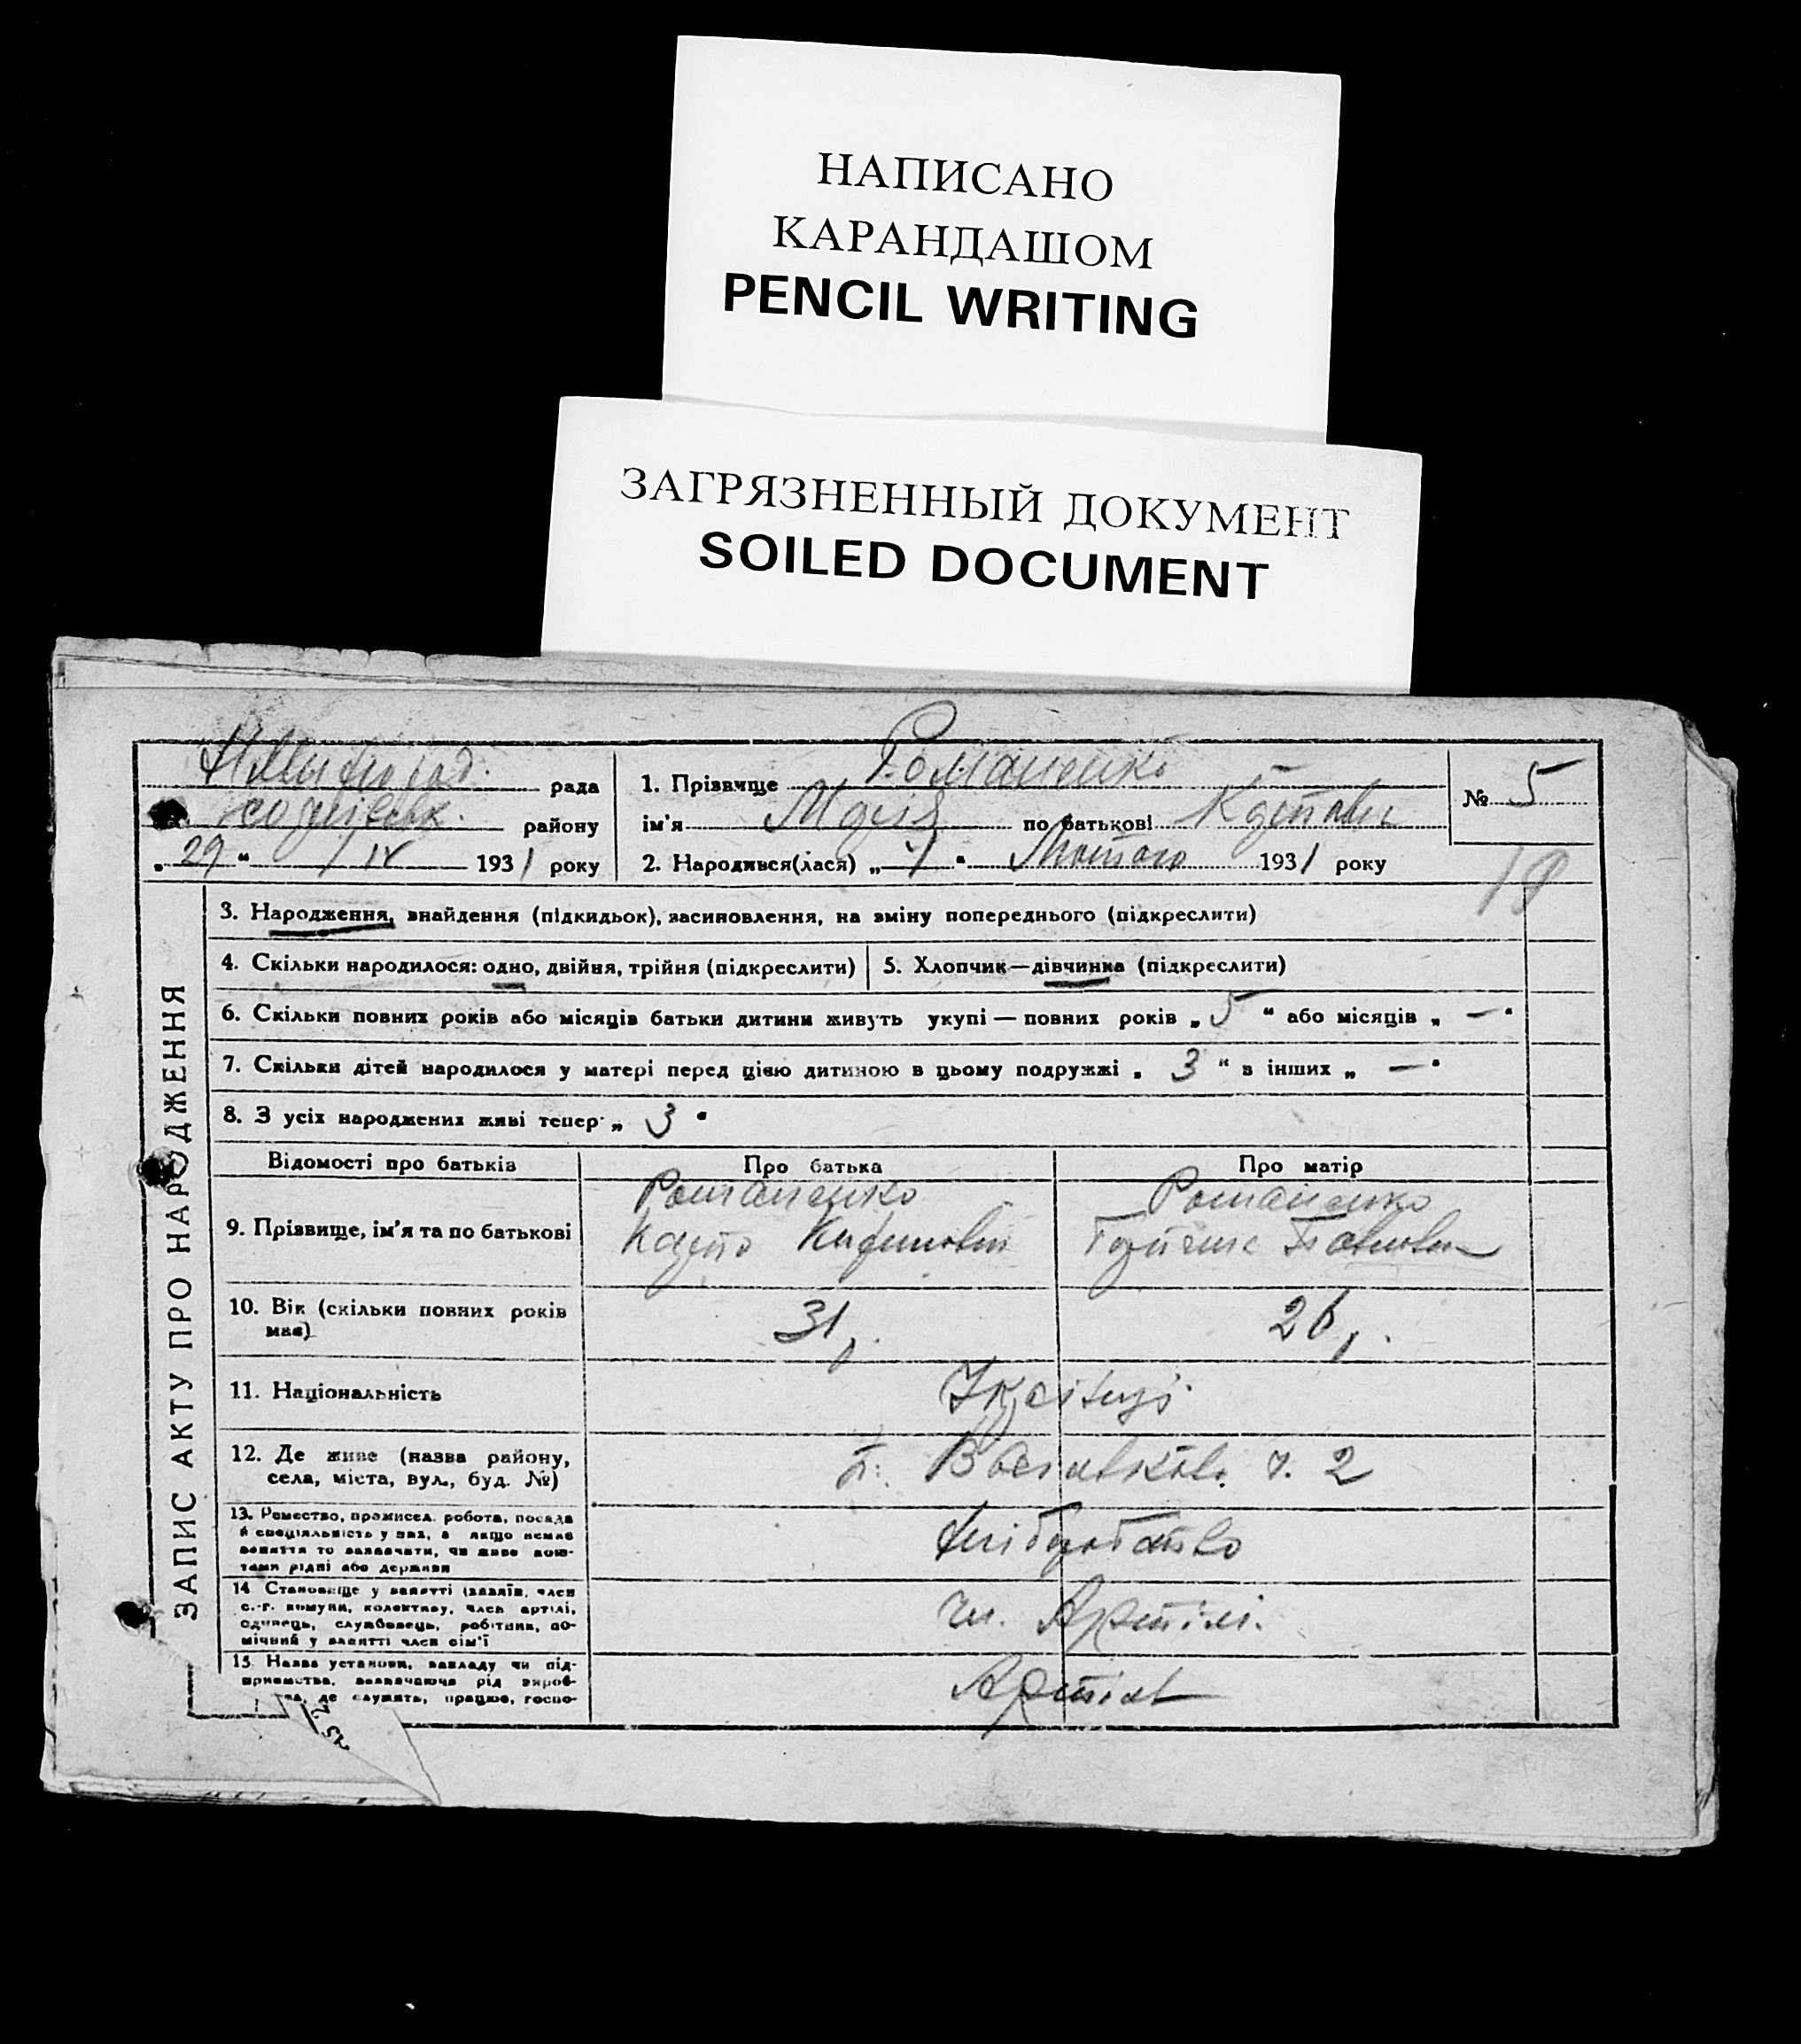 НАПИСАНО
КАРАНДАШОМ
PENCIL WRITING
ЗАГРЯЗНЕННЫЙ ДОКУМЕНТ
SOILED DOCUMENT
рада
району
„29“ / IV 1931 року
1. Прізвище Романенко
ім'я Марія по батькові
2. Народився(лася) „ “ Лютого 1931 року
№ 5
18
ЗАПИС АКТУ ПРО НАРОДЖЕННЯ
3. Народження, знайдення (підкидьок), засиновлення, на зміну попереднього (підкреслити)
4. Скільки народилося: одно, двійня, трійня (підкреслити)
5. Хлопчик—дівчинка (підкреслити)
6. Скільки повних років або місяців батьки дитини живуть укупі — повних років „ 5 “ або місяців „ — “
7. Скільки дітей народилося у матері перед цією дитиною в цьому подружжі „ 3 “ в інших „ — “
8. З усіх народжених живі тепер „ 3 “
Відомості про батьків
Про батька
Про матір
9. Прізвище, ім'я та по батькові
Романенко
Романенко
10. Вік (скільки повних років
має)
31
26
11. Національність
Українці
12. Де живе (назва району,
села, міста, вул., буд. №)
2
13. Ремество, промисел, робота, посада
й спеціяльність у них, а якщо немає
заняття то зазначати, чи живе кош-
тами рідні або держави
Хліборобство
14. Становище у занятті (хазяїн, член
с.-г. комуни, колективу, член артілі,
одинець, службовець, робітник, по-
мічний у занятті член сім'ї
чл. Артілі.
15. Назва установи, закладу чи під-
приємства, зазначаючи рід вироб-
де служить, працює, госпо-
Артіль